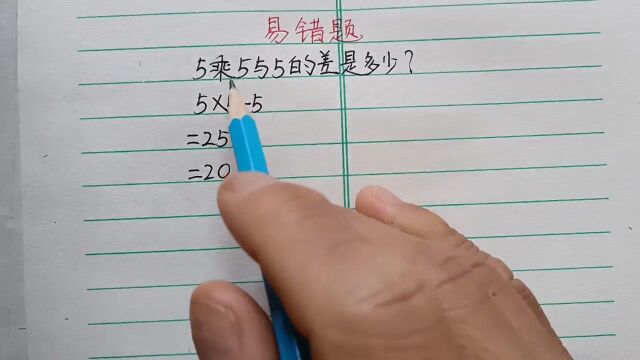 易错题
5乘5与5的差是多少?
5× -5
=25
=20